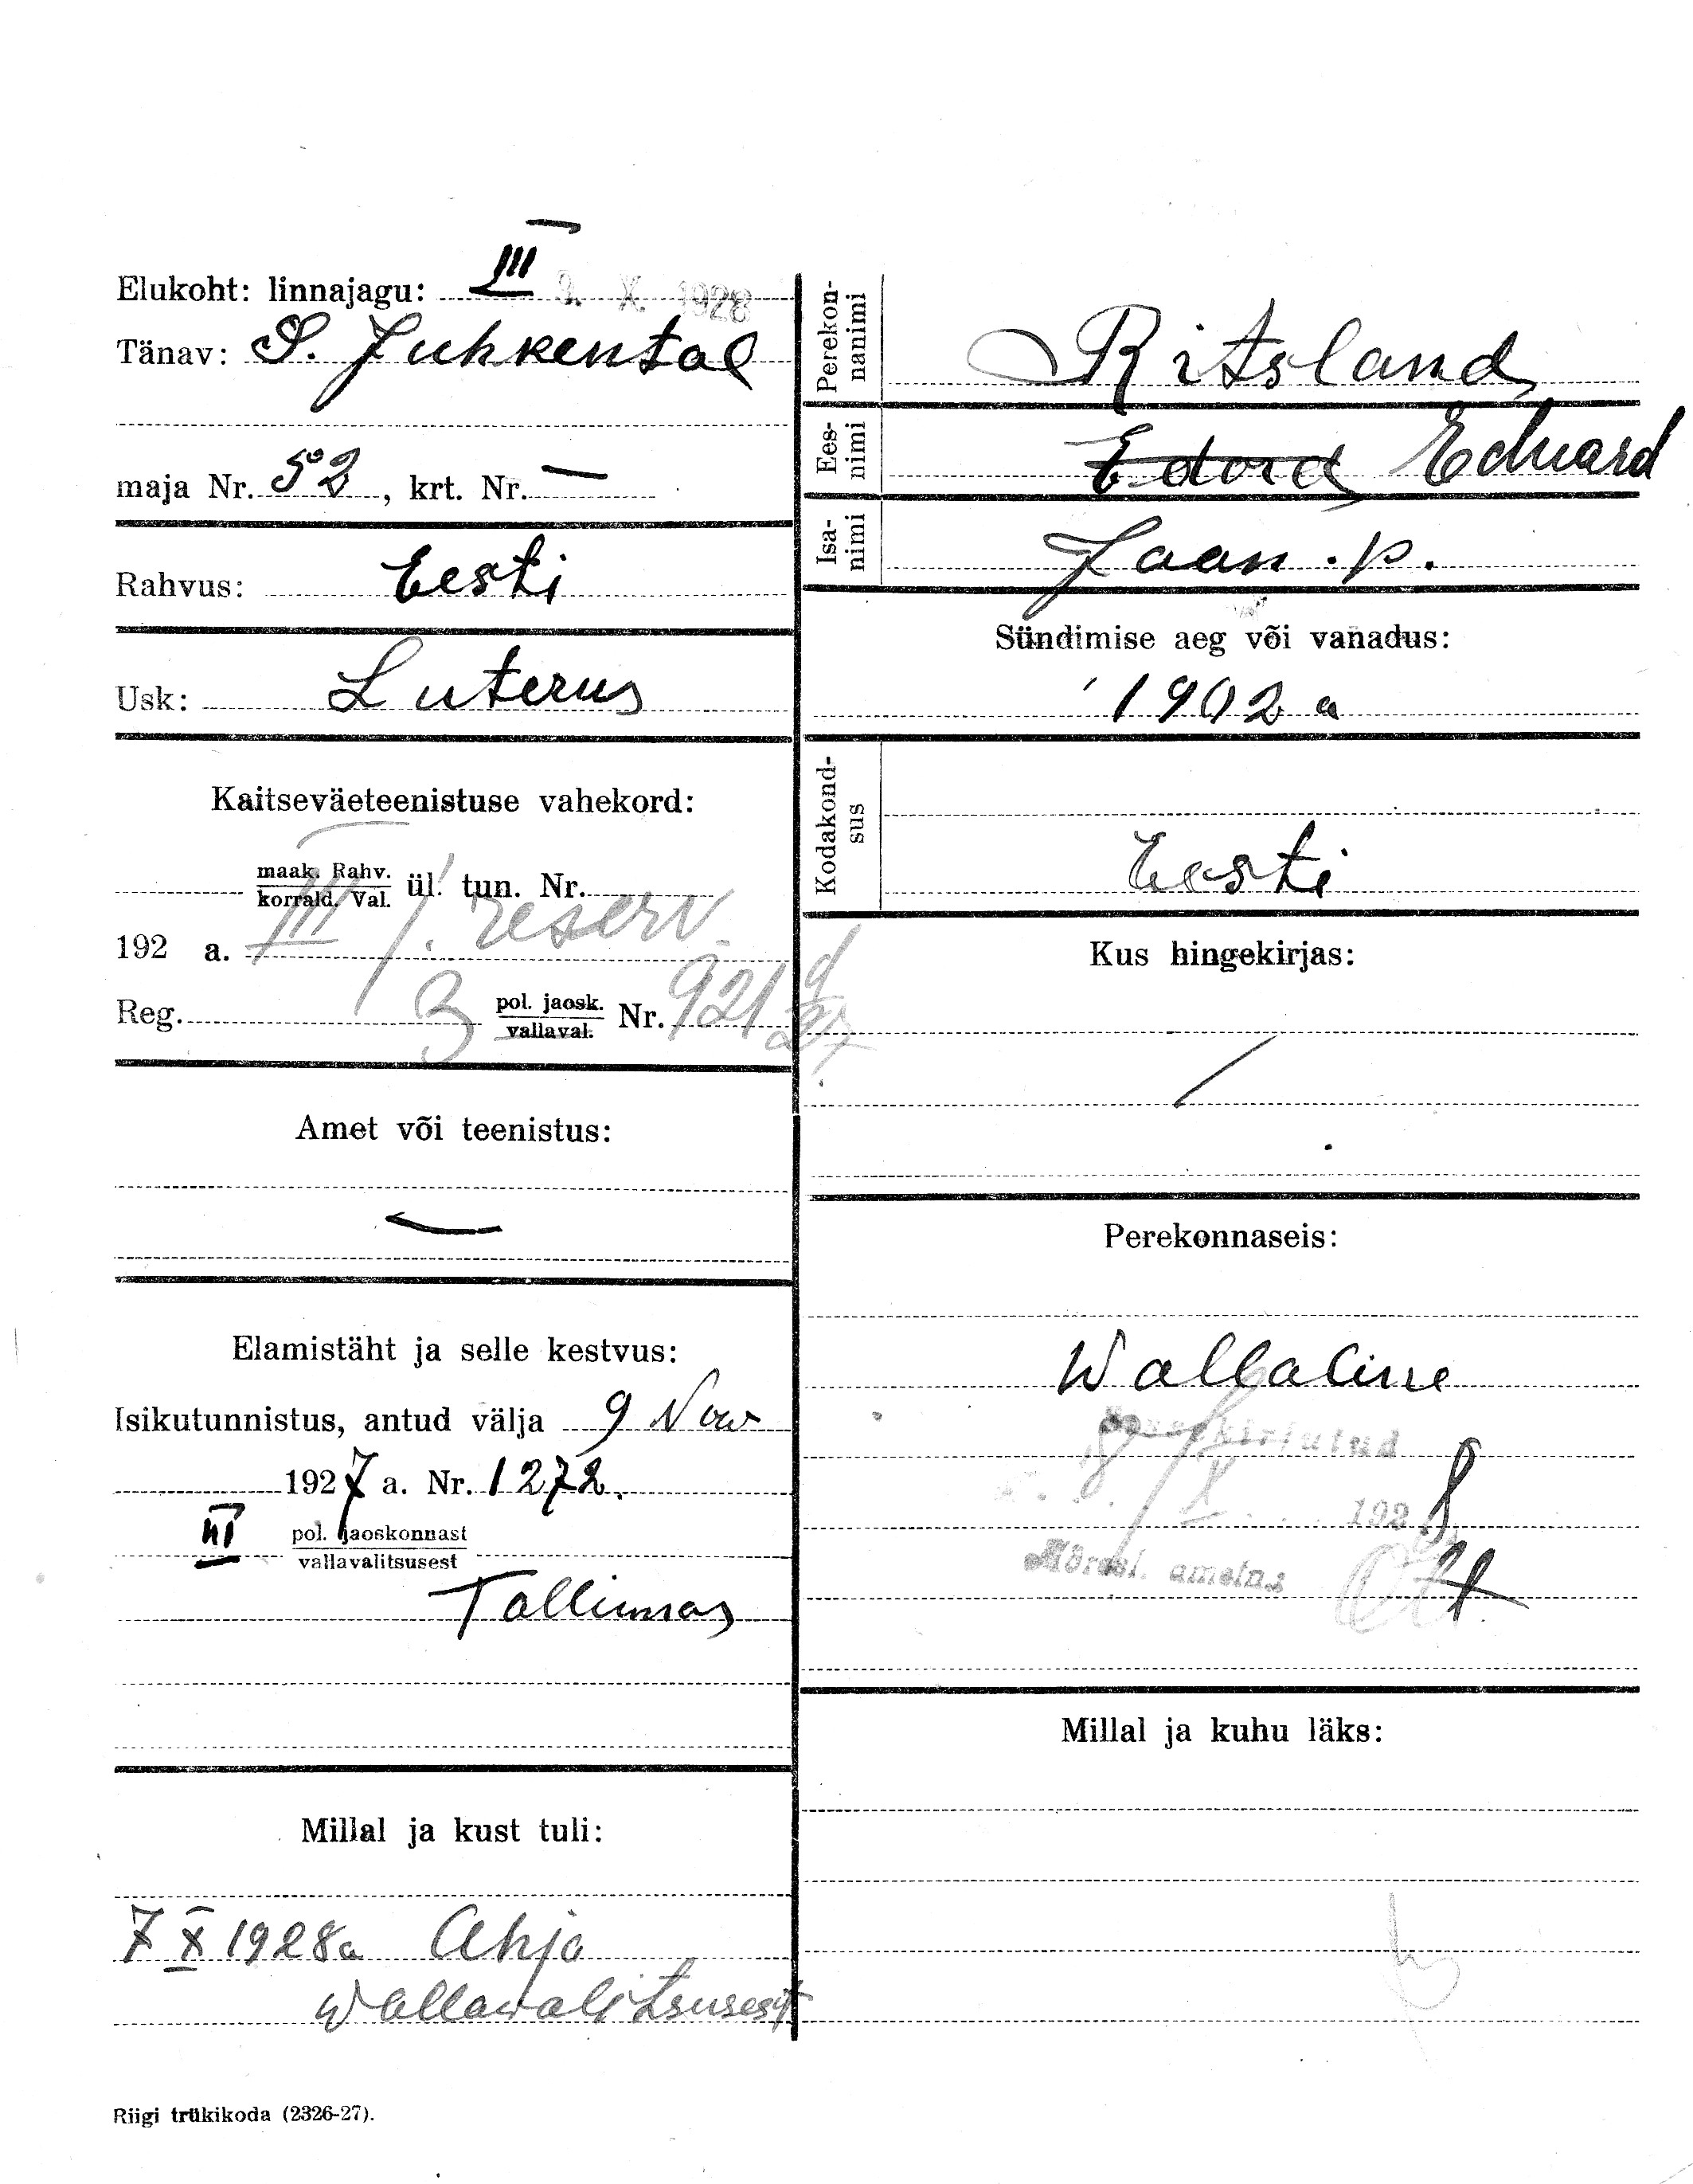 Elukoht: linnajagu: III
X 1928
Tänav: S. Juhkental
maja Nr. 52, krt. Nr. —
Rahvus: Eesti
Usk: Luterus
Kaitseväeteenistuse vahekord:
maak. Rahv.
korrald. Val. ül. tun. Nr.
192 a. III / reserv.
Reg. 3 pol. jaosk.
vallaval. Nr. 921
Amet või teenistus:
—
Elamistäht ja selle kestvus:
Isikutunnistus, antud välja 9 Now
1927 a. Nr. 1272.
III pol. jaoskonnast
vallavalitsusest
Tallinnas
Millal ja kust tuli:
7 X 1928a Ahja
Wallawalitsusest
Riigi trükikoda (2326-27).
Perekon-
nanimi
Ritsland
Ees-
nimi
Edord Eduard
Isa-
nimi
Jaan. p.
Sündimise aeg või vanadus:
1902 a
Kodakond-
sus
Eesti
Kus hingekirjas:
/
Perekonnaseis:
Wallaline
Sissekirjutud
8 / X 1928
Ott
Millal ja kuhu läks: